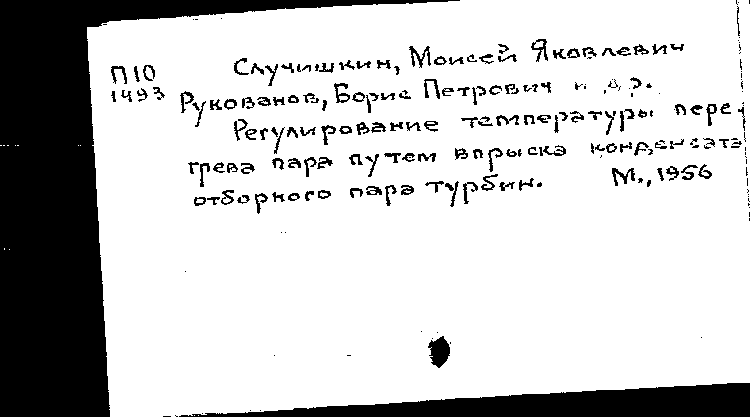 П10
1493
Случишкин, Моисей Яковлевич
Рукованов, Борис Петрович и др.
Регулирование температуры пере-
грева пара путем впрыска конденсата
отборного пара турбин. М., 1956